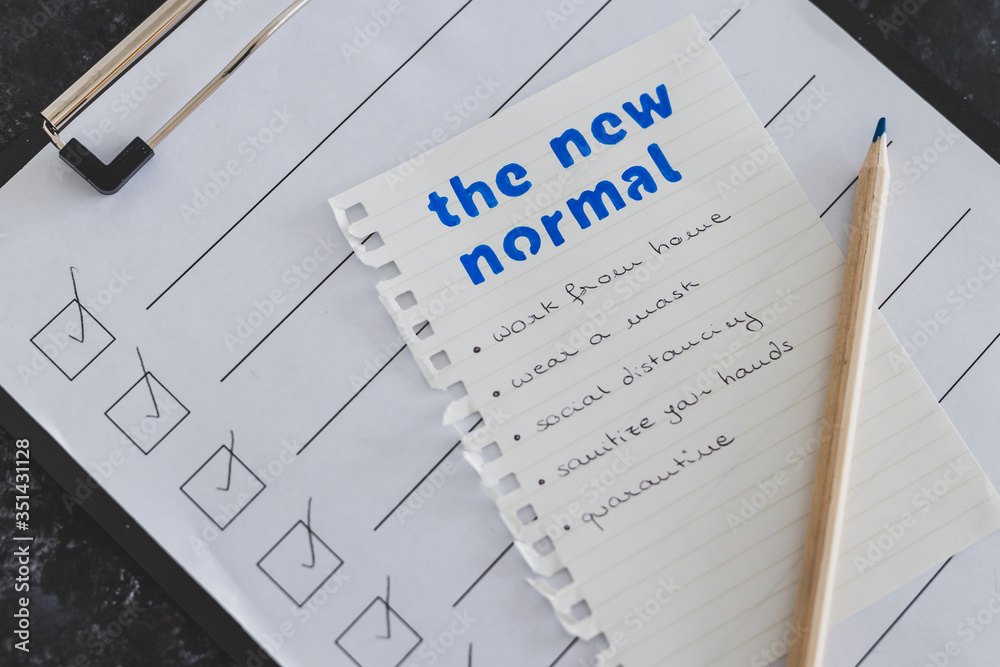 the new
normal
• work from home
• wear a mask
• social distancing
• sanitize your hands
• quarantine
Adobe Stock | #351431128